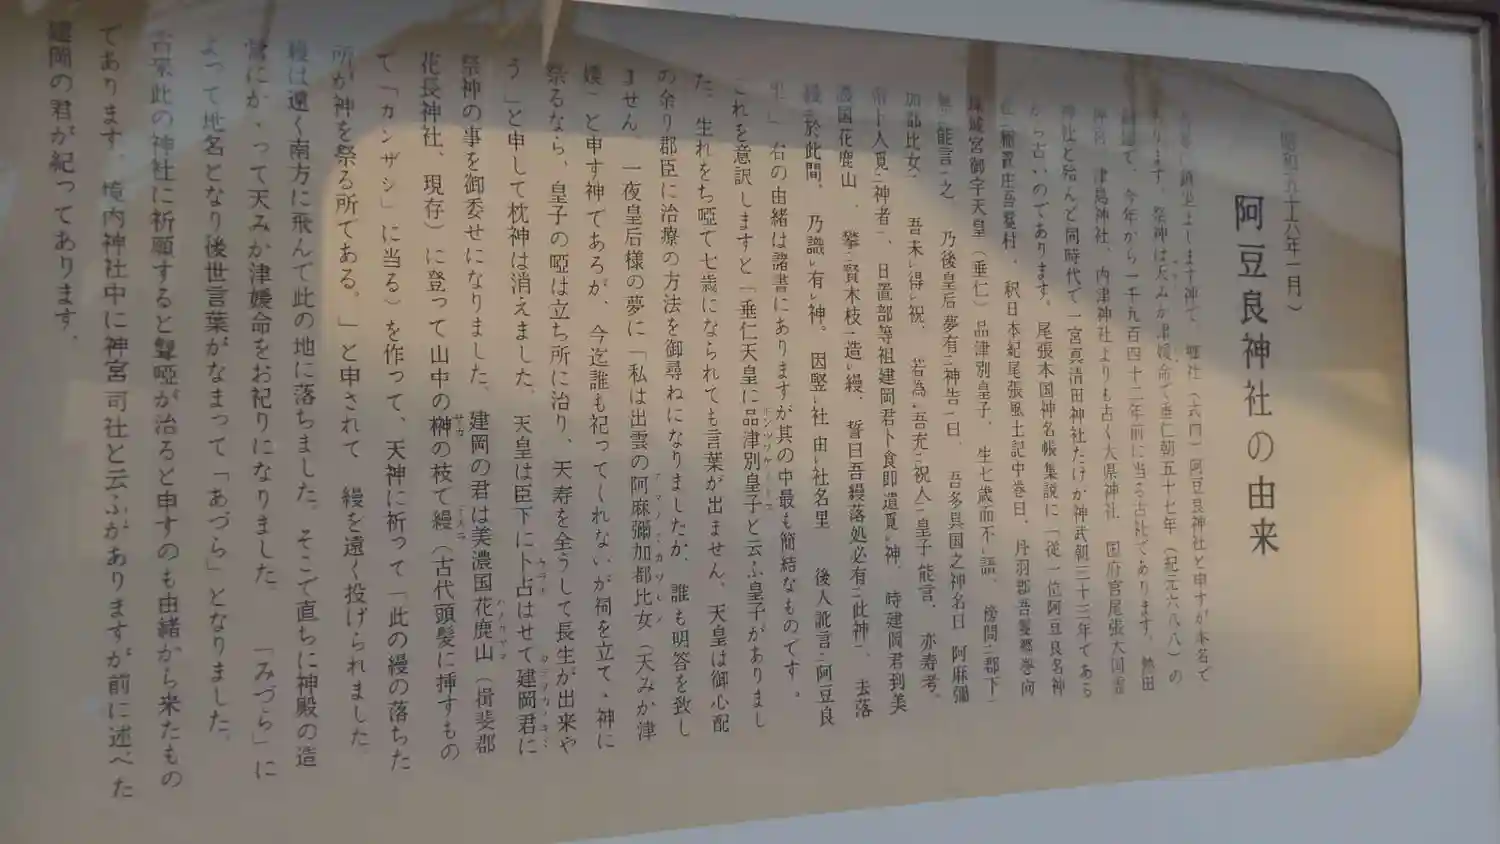 昭和五十六年一月）
阿豆良神社の由来
鎮坐まします神で、 阿豆良神社と申すが本名で
あります。祭神は天みか津媛命で垂仁朝五十七年（紀元六八八）の
今年から一千九百四十二年前に当る古社であります。熱田
神宮、津島神社、内津神社よりも古く大県神社、国府宮尾張大国霊
神社と殆んど同時代で一宮真清田神社だけが神武朝三十三年であら
から古いのであります。尾張本国神名帳集説に「従一位阿豆良名神
稲置庄吾鬘村、釈日本紀尾張風土記中巻曰、丹羽郡吾鬘郷巻向
珠城宮御宇天皇（垂仁）品津別皇子、生七歳而不語、傍問群下
無能言之 乃後皇后夢有神告曰、吾多具国之神名曰 阿麻彌
加都比女 吾未得祝、若為吾充祝人皇子能言、亦寿考。
帝卜人覓神者、日置部等祖建岡君卜食即遣覓神、時建岡君到美
濃国花鹿山、攀賢木枝造縵、誓曰吾縵落処必有此神、去落
縵於此間、乃識有神。因竪社 由社名里 後人訛言阿豆良
里」右の由緒は諸書にありますが其の中最も簡結なものです。
これを意訳しますと「垂仁天皇に品津別皇子と云ふ皇子がありまし
た。生れをち啞で七歳になられても言葉が出ません。天皇は御心配
の余り郡臣に治療の方法を御尋ねになりましたが、誰も明答を致し
ません 一夜皇后様の夢に「私は出雲の阿麻彌加都比女（天みか津
媛）と申す神であるが、今迄誰も祀ってくれないが祠を立て、神に
祭るなら、皇子の啞は立ち所に治り、天寿を全うして長生が出来や
う」と申して枕神は消えました。天皇は臣下に卜占はせて建岡君に
祭神の事を御委せになりました。建岡の君は美濃国花鹿山（揖斐郡
花長神社、現存）に登って山中の榊の枝で縵（古代頭髪に挿すもの
で「カンザシ」に当る）を作って、天神に祈って「此の縵の落ちた
所が神を祭る所である。」と申されて 縵を遠く投げられました
縵は遠く南方に飛んで此の地に落ちました。そこで直ちに神殿の造
営にかゝって天みか津媛命をお祀りになりました。「みづら」に
よって地名となり後世言葉がなまって「あづら」となりました。
古来此の神社に祈願すると聾啞が治ると申すのも由緒から来たもの
であります。境内神社中に神宮司社と云ふがありますが前に述べた
建岡の君が祀ってあります。